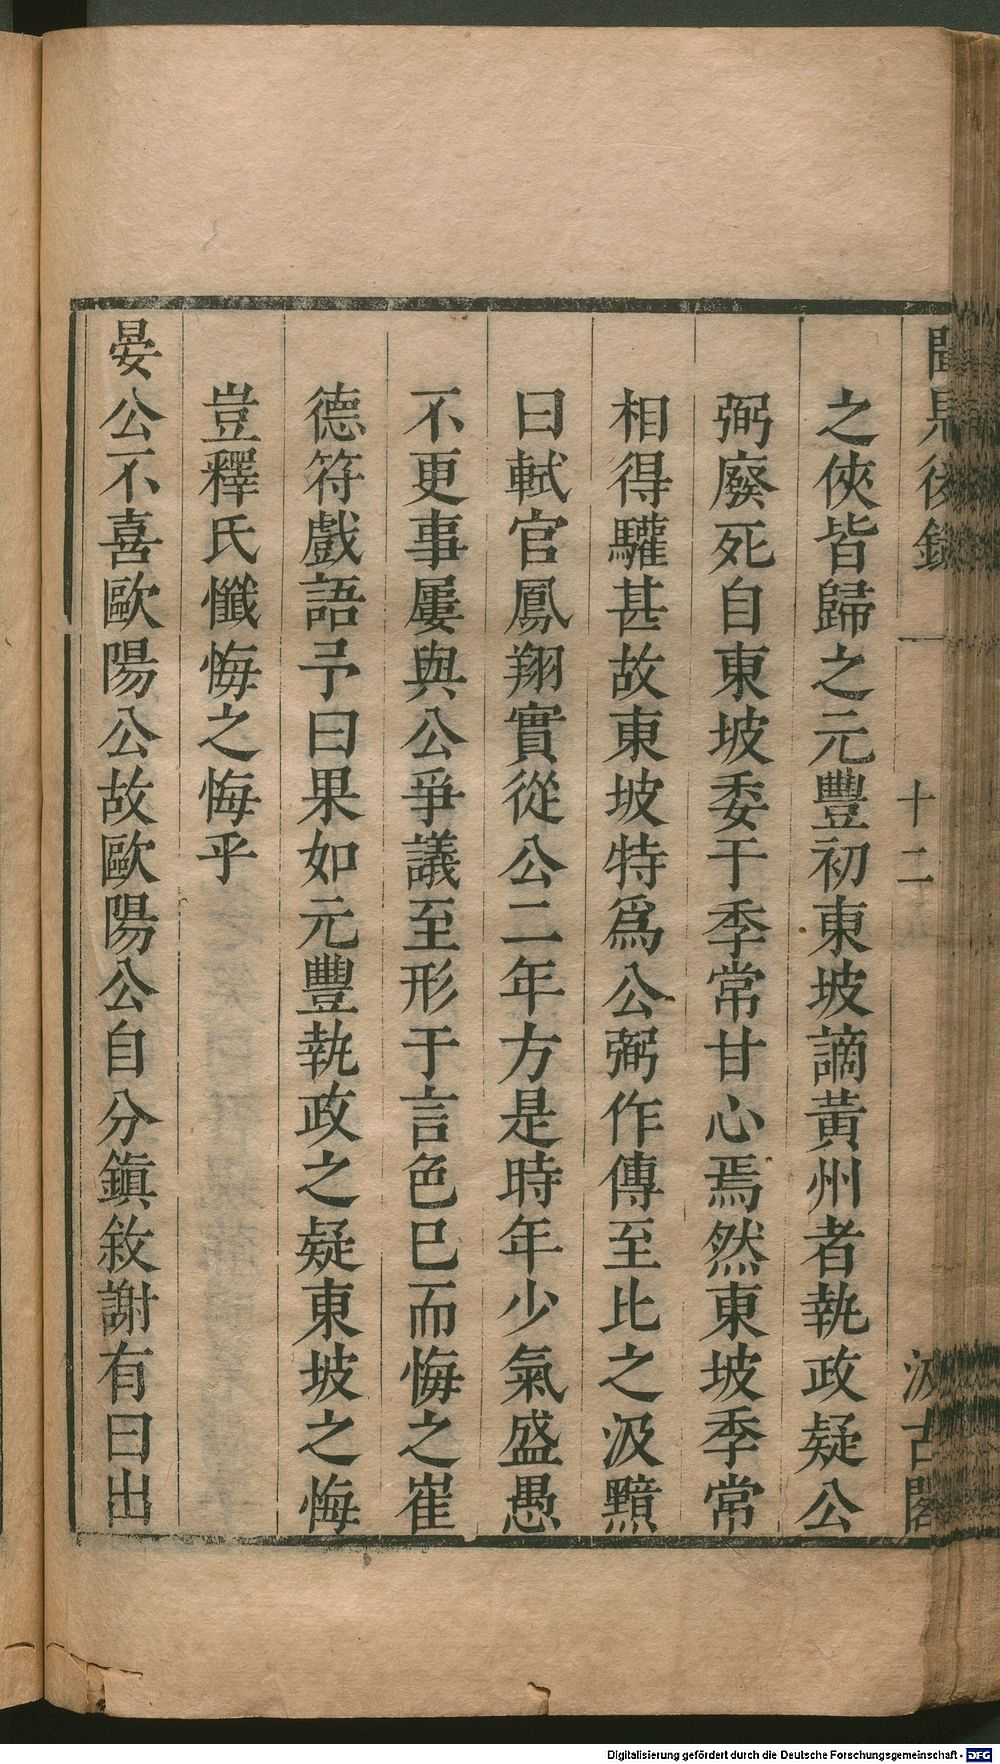 聞見後錄
十二
汲古閣
之俠皆歸之元豐初東坡謫黃州者執政疑公
弼廢死自東坡委于季常甘心焉然東坡季常
相得驩甚故東坡特爲公弼作傳至比之汲黯
曰軾官鳳翔實從公二年方是時年少氣盛愚
不更事屢與公爭議至形于言色已而悔之崔
德符戲語予曰果如元豐執政之疑東坡之悔
豈釋氏懺悔之悔乎
晏公不喜歐陽公故歐陽公自分鎭敘謝有曰出
Digitalisierung gefördert durch die Deutsche Forschungsgemeinschaft - DFG